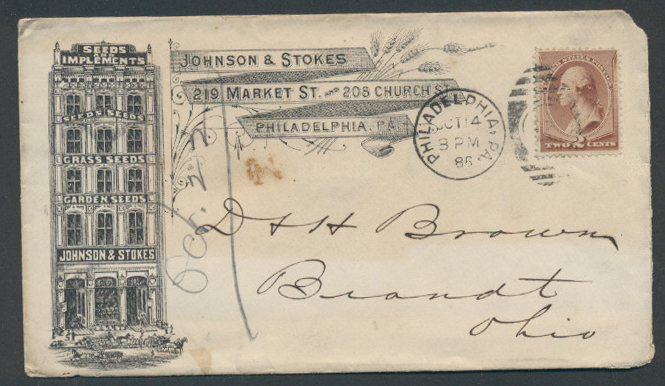 SEEDS
AND
IMPLEMENTS
SEEDS SEEDS
GRASS SEEDS
GARDEN SEEDS
JOHNSON & STOKES
JOHNSON & STOKES
219 MARKET ST. AND 208 CHURCH ST.
PHILADELPHIA, PA.
PHILADELPHIA, PA.
OCT 14
3 PM
86
TWO 2 CENTS
Oct. 22
D & H Brown
Brandt
Ohio